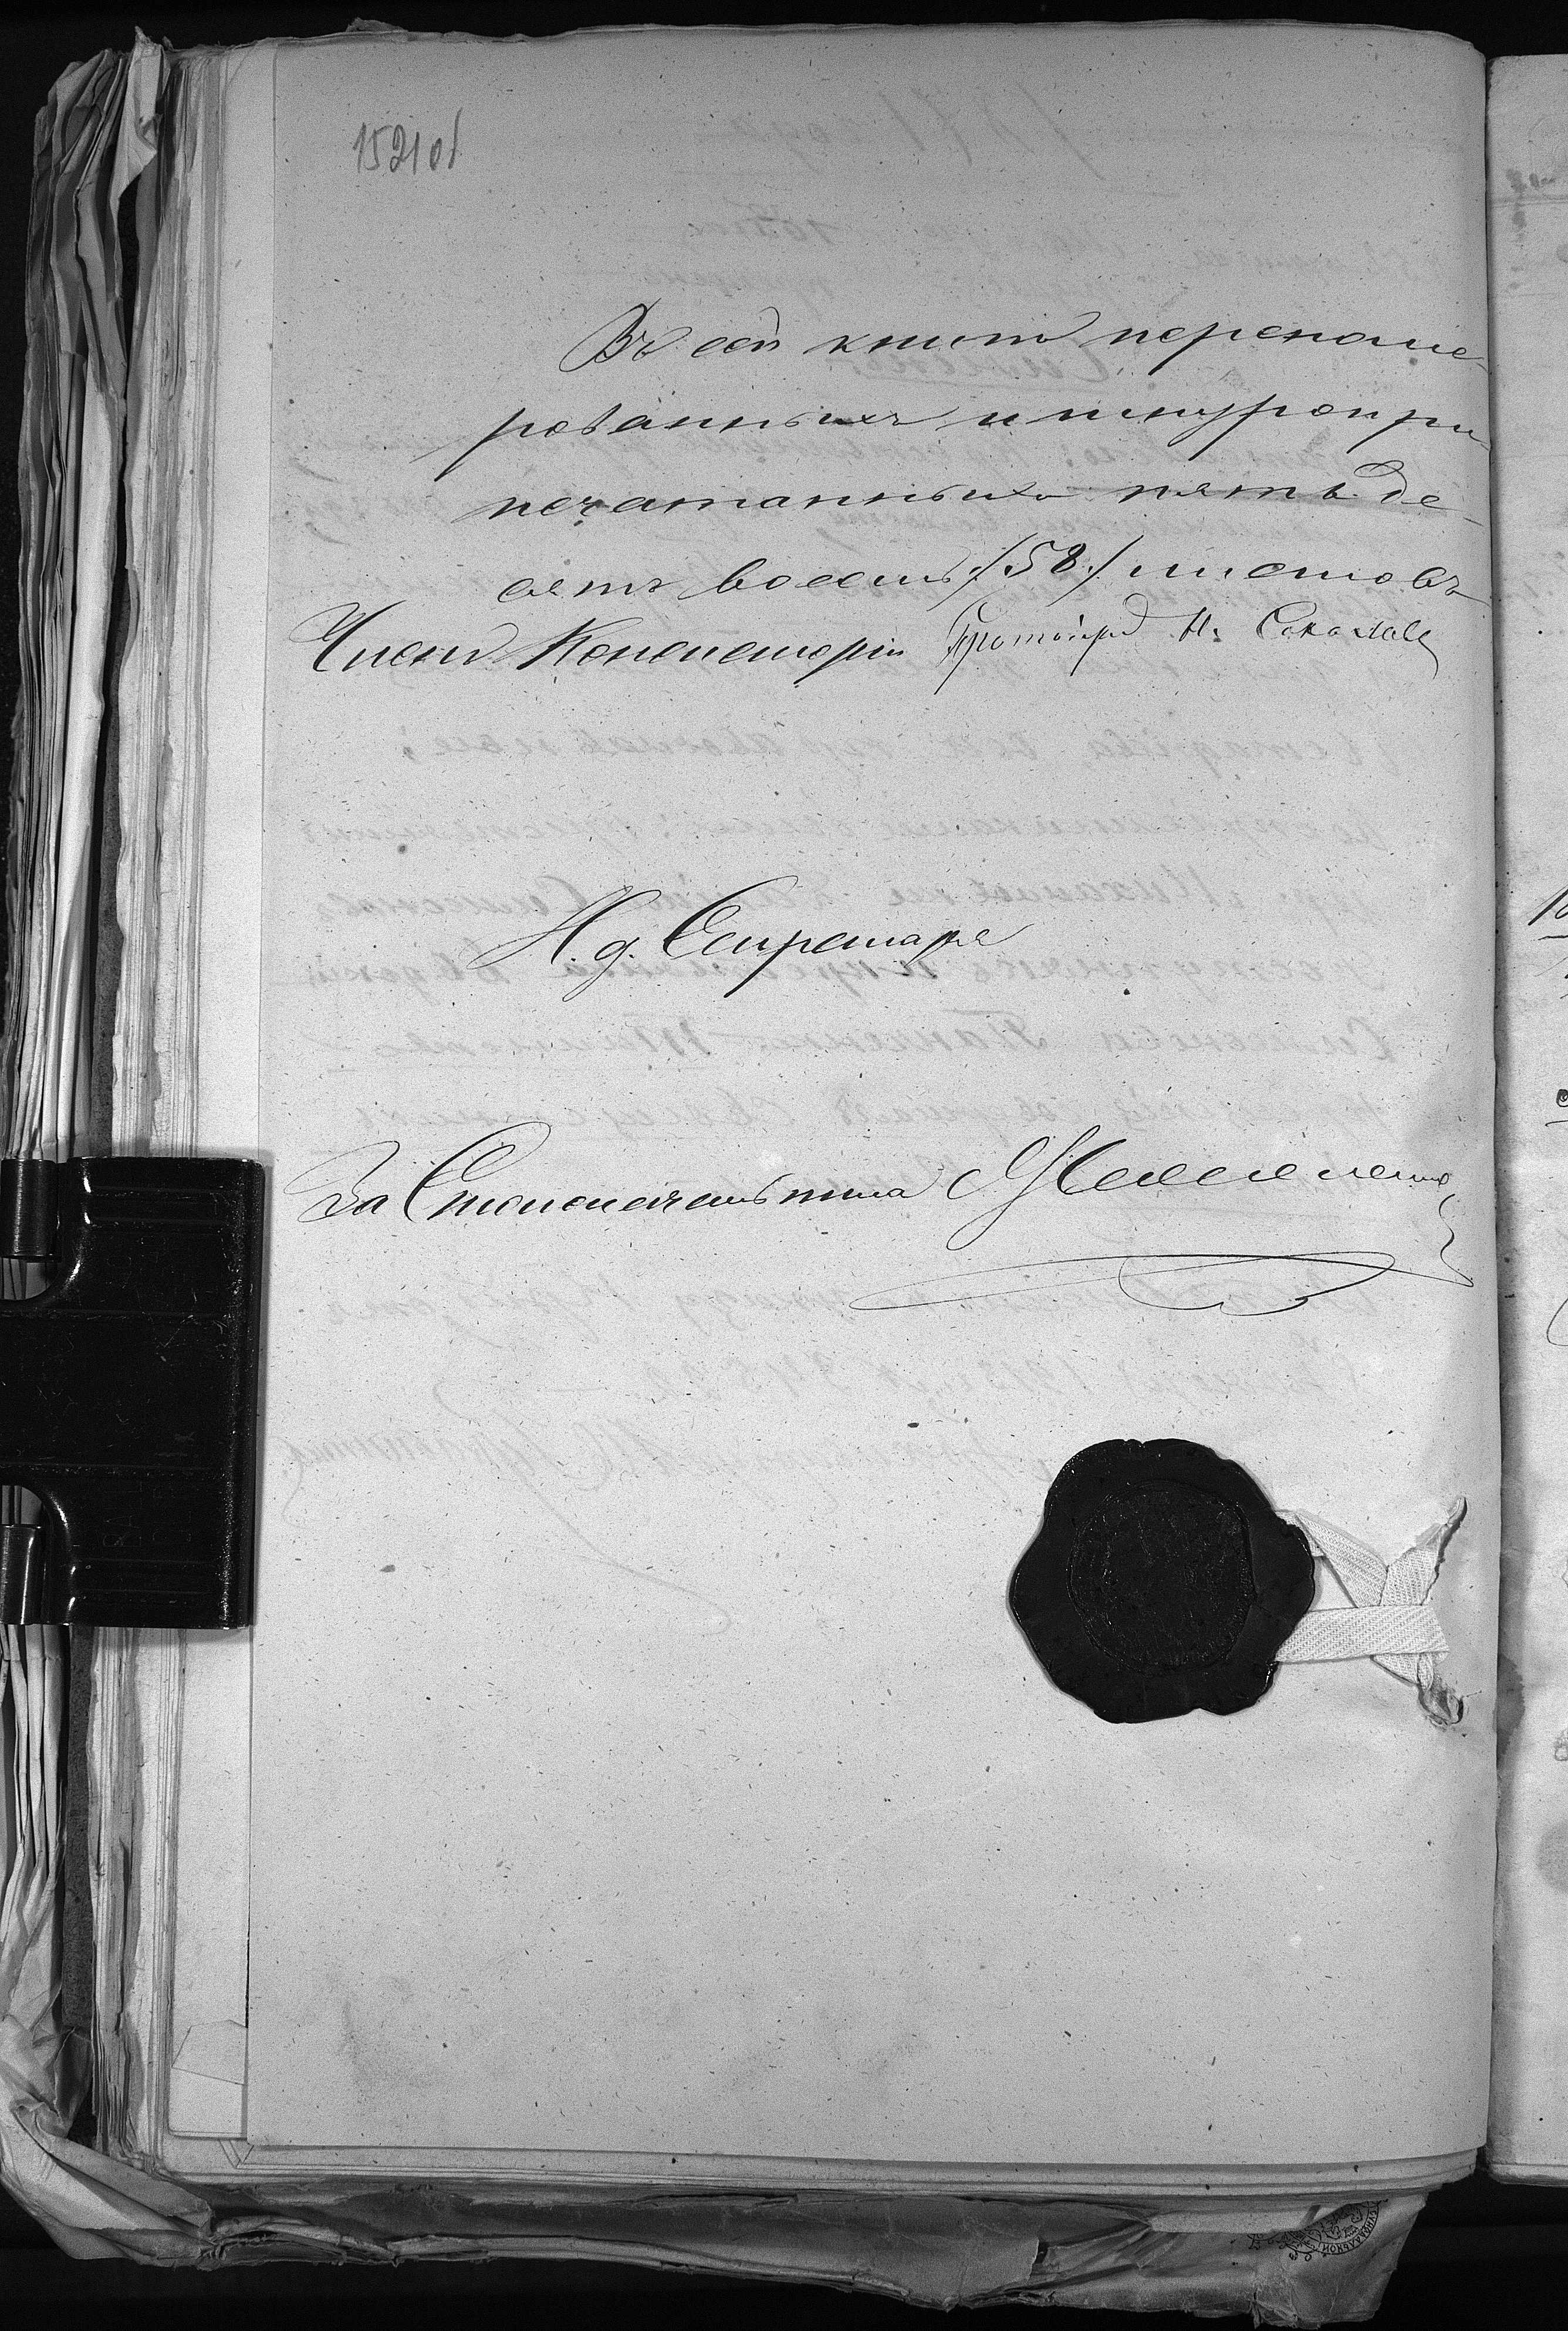 152 об
Въ сей книгѣ перенуме-
рованныхъ и шнуропри-
печатанныхъ пятьде-
сятъ восемь /58/ листовъ
Членъ Консисторіи Протоіерей Н. Соколовъ
И. д. Секретаря
За Столоначальника